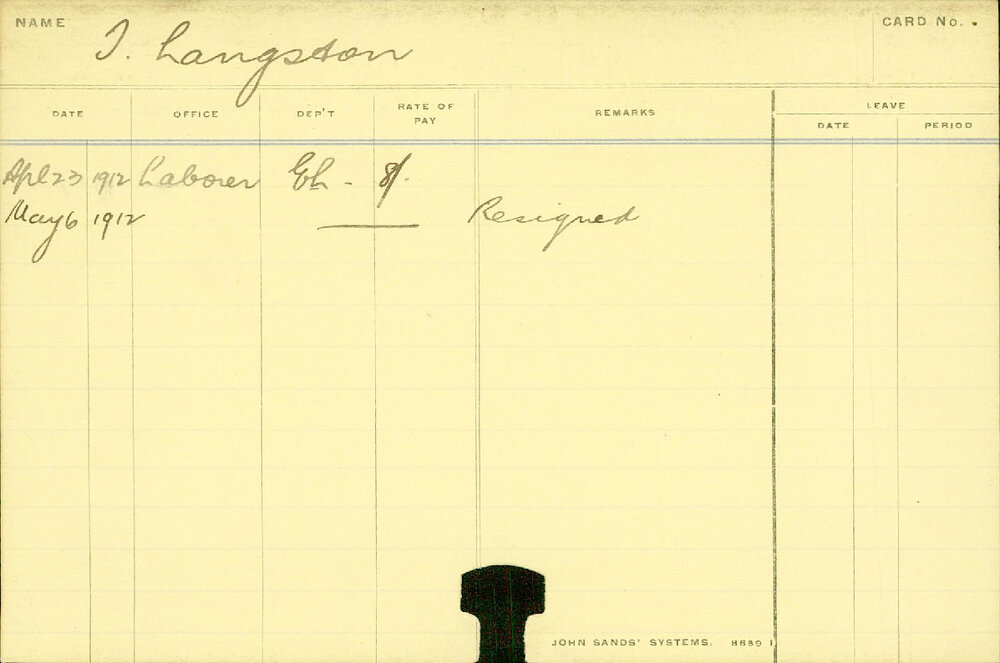 NAME T. Langston CARD No.
DATE OFFICE DEP'T RATE OF PAY REMARKS LEAVE
DATE PERIOD
Apl 23 1912 Laborer Eh - 8/.
May 6 1912 Resigned
JOHN SANDS' SYSTEMS. H889